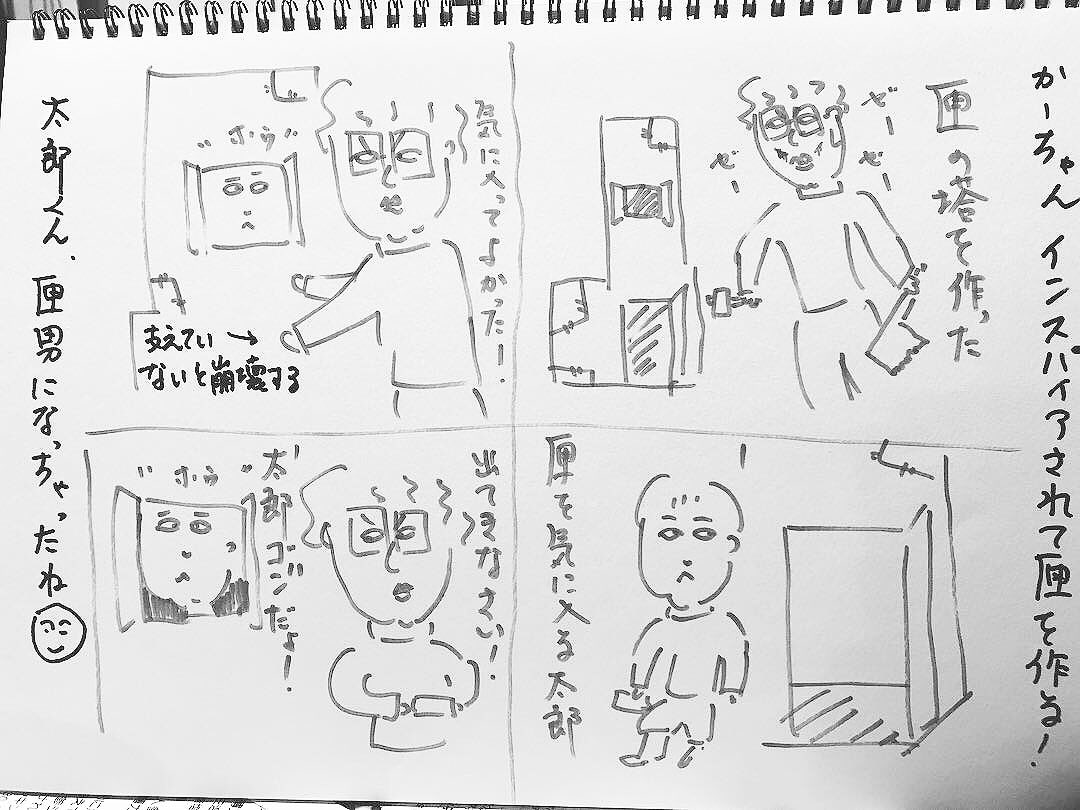 かーちゃん インスパイアされて匣を作る!
匣の塔を作った
ぜー
ぜー
匣を気に入る太郎
気に入ってよかった!
ボヴ
支えてい→
ないと崩壊する
出てきなさい!
太郎 ゴゴンだょ!
ボヴ
太郎くん、匣男になっちゃったね